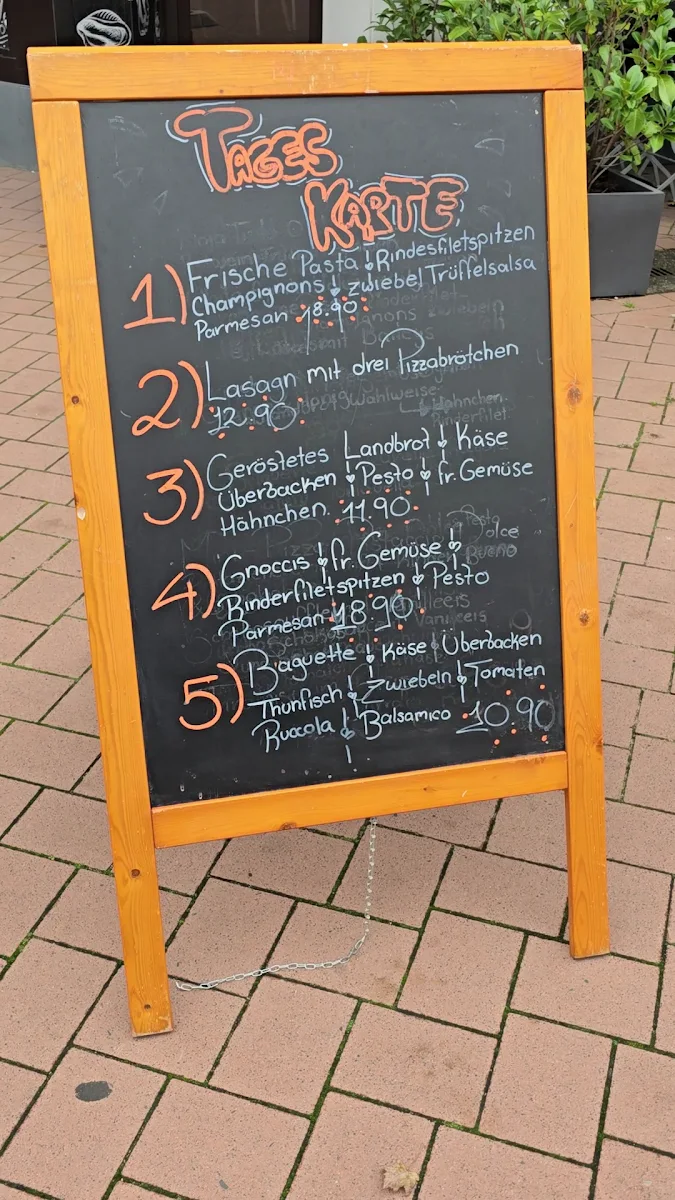 TAGES
KARTE
1) Frische Pasta Rindesfiletspitzen
Champignons Zwiebel Trüffelsalsa
Parmesan 18.90
2) Lasagn mit drei Pizzabrötchen
12.90
3) Geröstetes Landbrot Käse
Überbacken Pesto fr. Gemüse
Hähnchen. 11.90
4) Gnoccis fr. Gemüse
Rinderfiletspitzen Pesto
Parmesan 18.90
5) Baguette Käse Überbacken
Thunfisch Zwiebeln Tomaten
Ruccola Balsamico 10.90